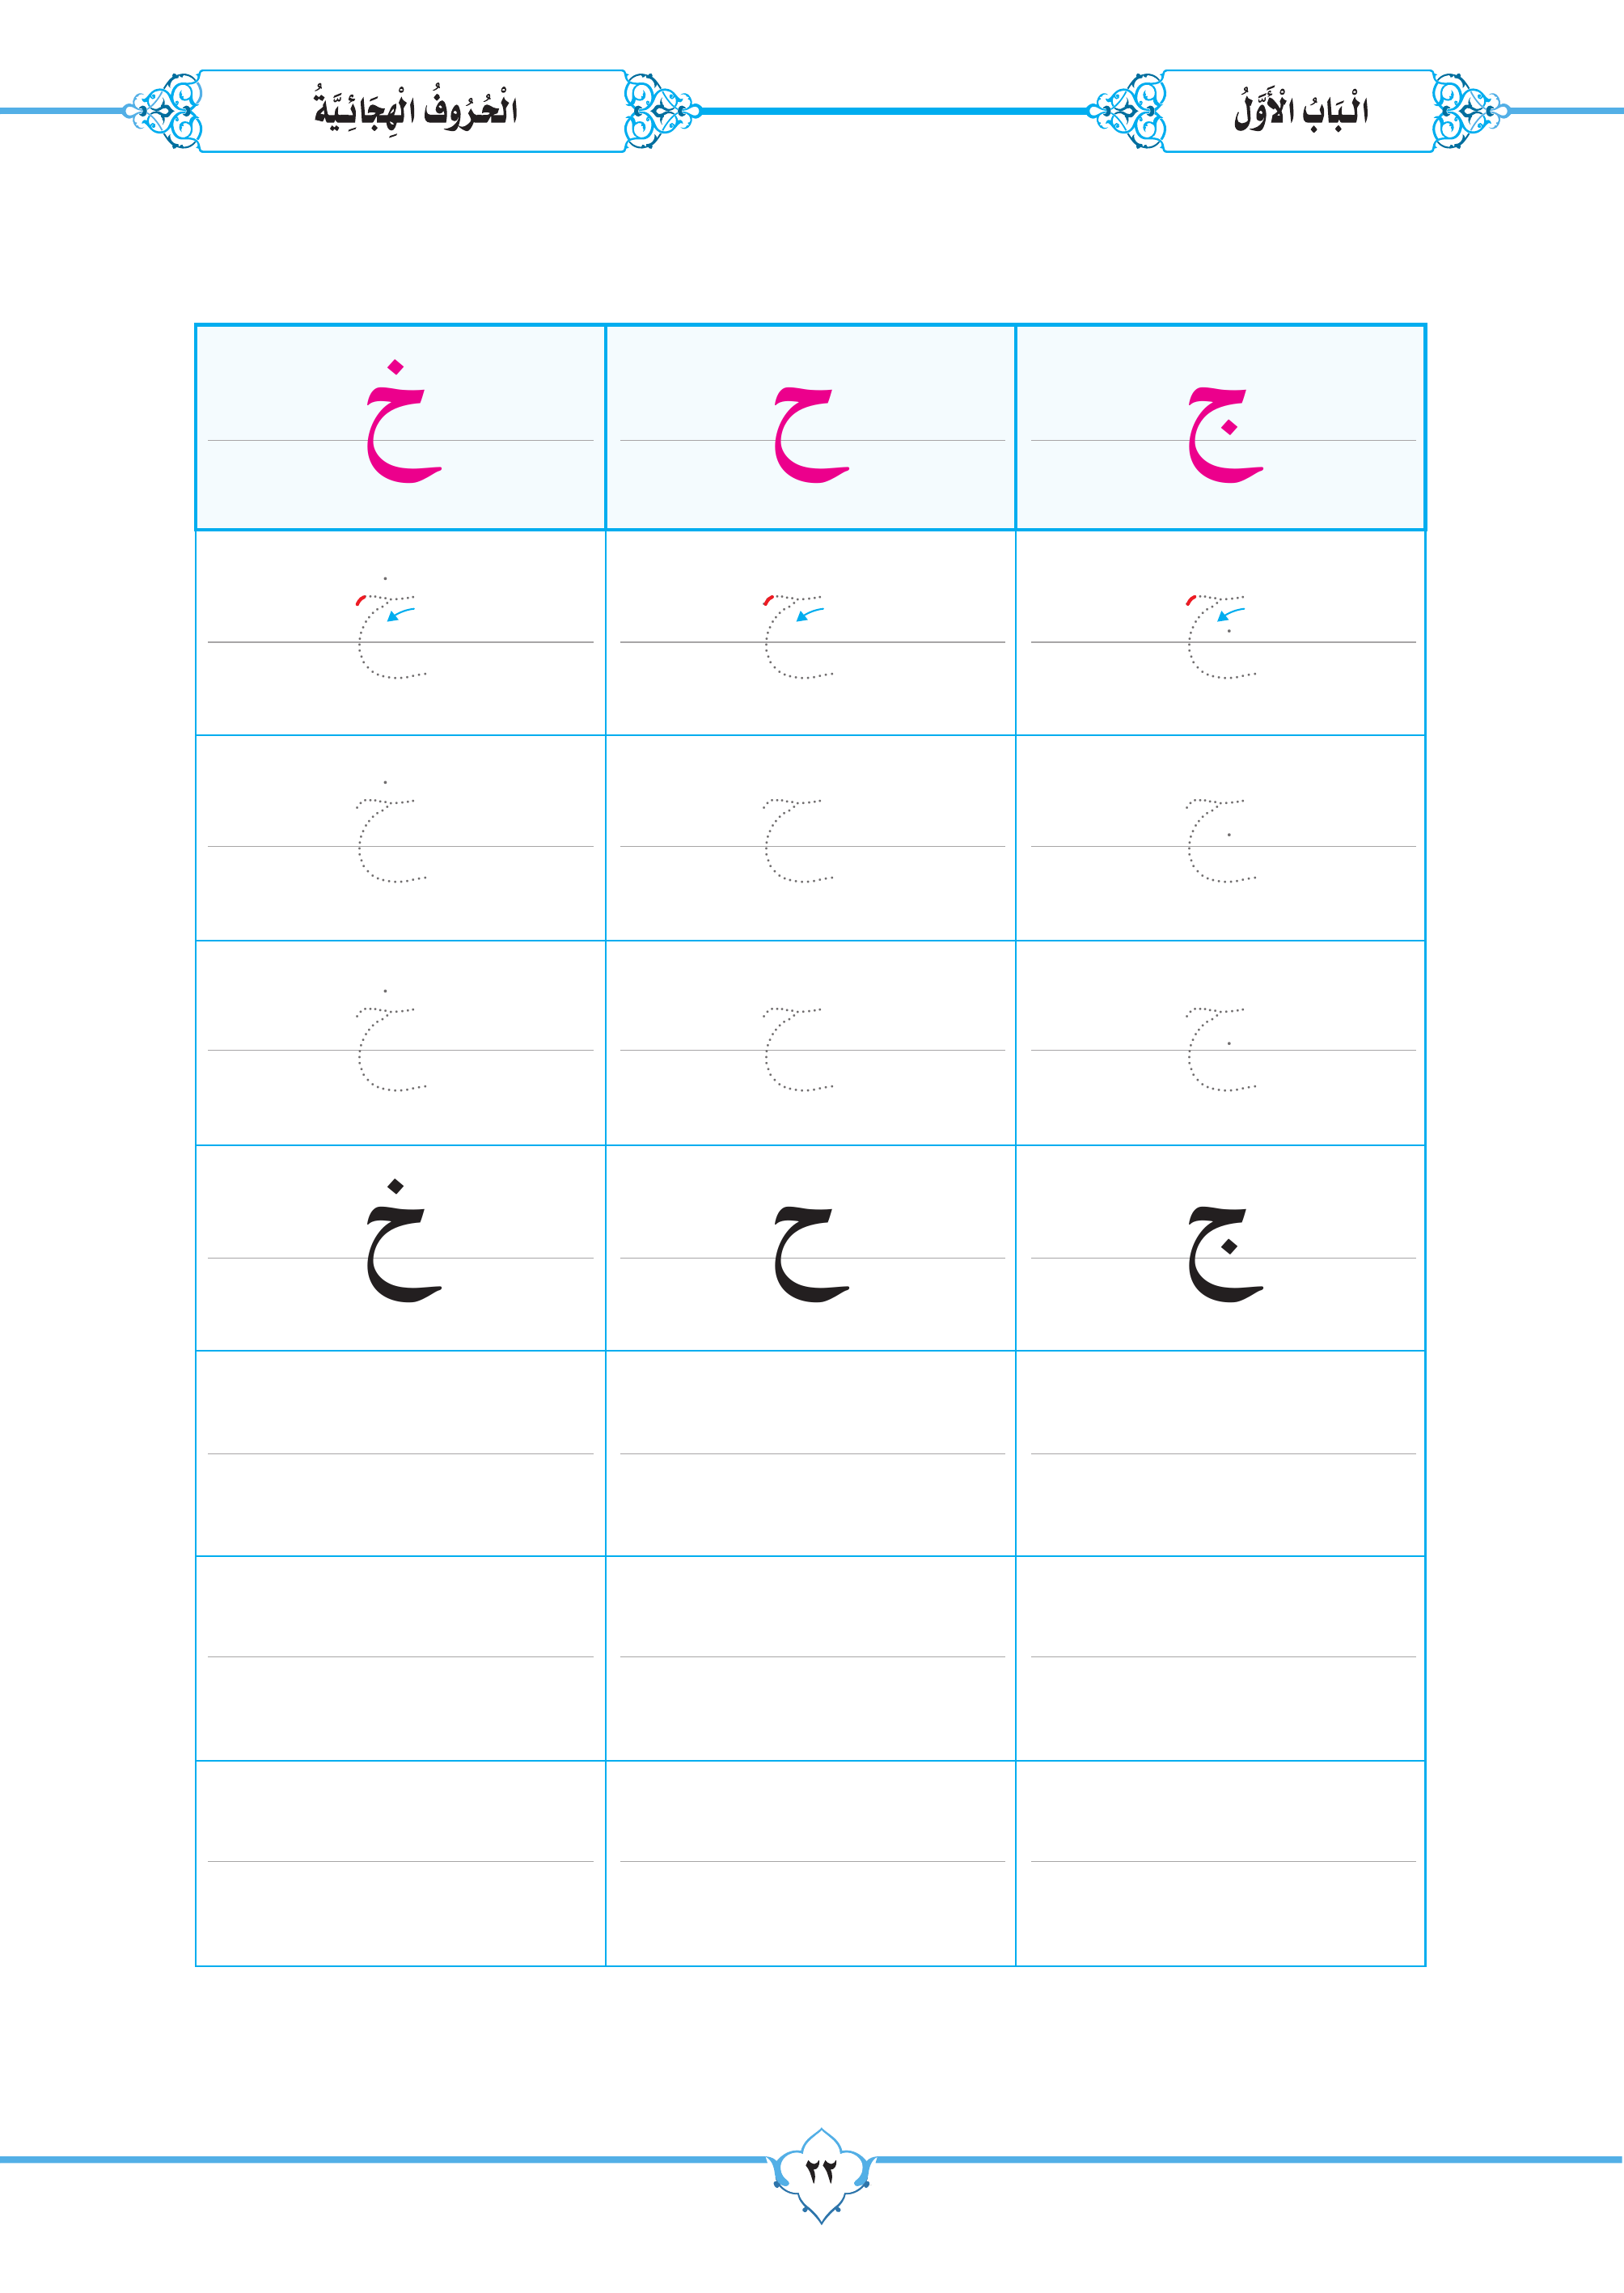 الْبَابُ الْأَوَّلُ
الْحُرُوفُ الْهِجَائِيَّةُ
ج ح خ
ج ح خ
ج ح خ
ج ح خ
ج ح خ
٢٢